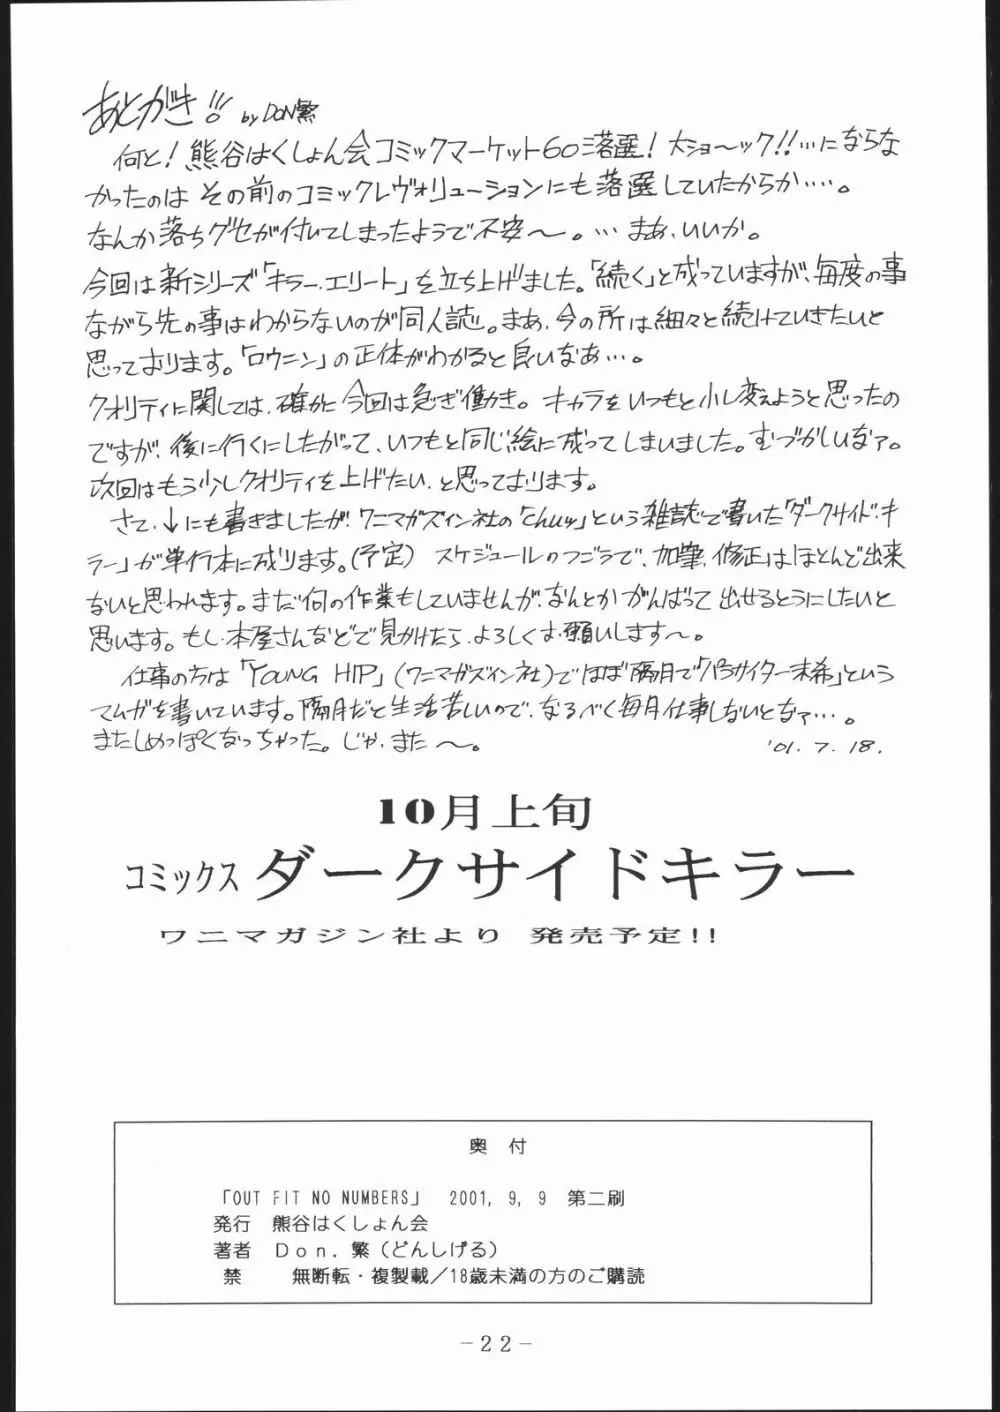 あとがき!! by DON繁
何と!熊谷はくしょん会コミックマーケット60落選!大ショ〜ック!!…にならな
かったのは その前のコミックレヴォリューションにも落選していたからか……。
なんか落ちグセが付いてしまったようで不安〜。…まあ、いいか。
今回は新シリーズ「キラー・エリート」を立ち上げました。「続く」と成っていますが、毎度の事
ながら先の事はわからないのが同人誌。まあ、今の所は細々と続けていきたいと
思っております。「ロウニン」の正体がわかると良いなあ…。
クオリティに関しては、確かに今回は急ぎ働き。キャラをいつもと少し変えようと思ったの
ですが、後に行くにしたがって、いつもと同じ絵に成ってしまいました。むづかしいなァ。
次回はもう少しクオリティを上げたい、と思っております。
さて、↓にも書きましたが、ワニマガズィン社の「chuッ」という雑誌で書いた「ダークサイド・キ
ラー」が単行本に成ります。(予定) スケジュールのつごうで、加筆、修正はほとんど出来
ないと思われます。まだ何の作業もしていませんが、なんとかがんばって出せるようにしたいと
思います。もし、本屋さんなどで見かけたら、よろしくお願いします〜。
仕事の方は「YOUNG HIP」(ワニマガズィン社)でほぼ隔月で「パラサイター未希」という
マムガを書いています。隔月だと生活苦しいので、なるべく毎月仕事しないとなァ…。
またしめっぽくなっちゃった。じゃ、また〜。 '01.7.18.
10月上旬
コミックス ダークサイドキラー
ワニマガジン社より 発売予定!!
奥 付
「OUT FIT NO NUMBERS」 2001, 9, 9 第二刷
発行 熊谷はくしょん会
著者 Don. 繁(どんしげる)
禁 無断転・複製載/18歳未満の方のご購読
-22-